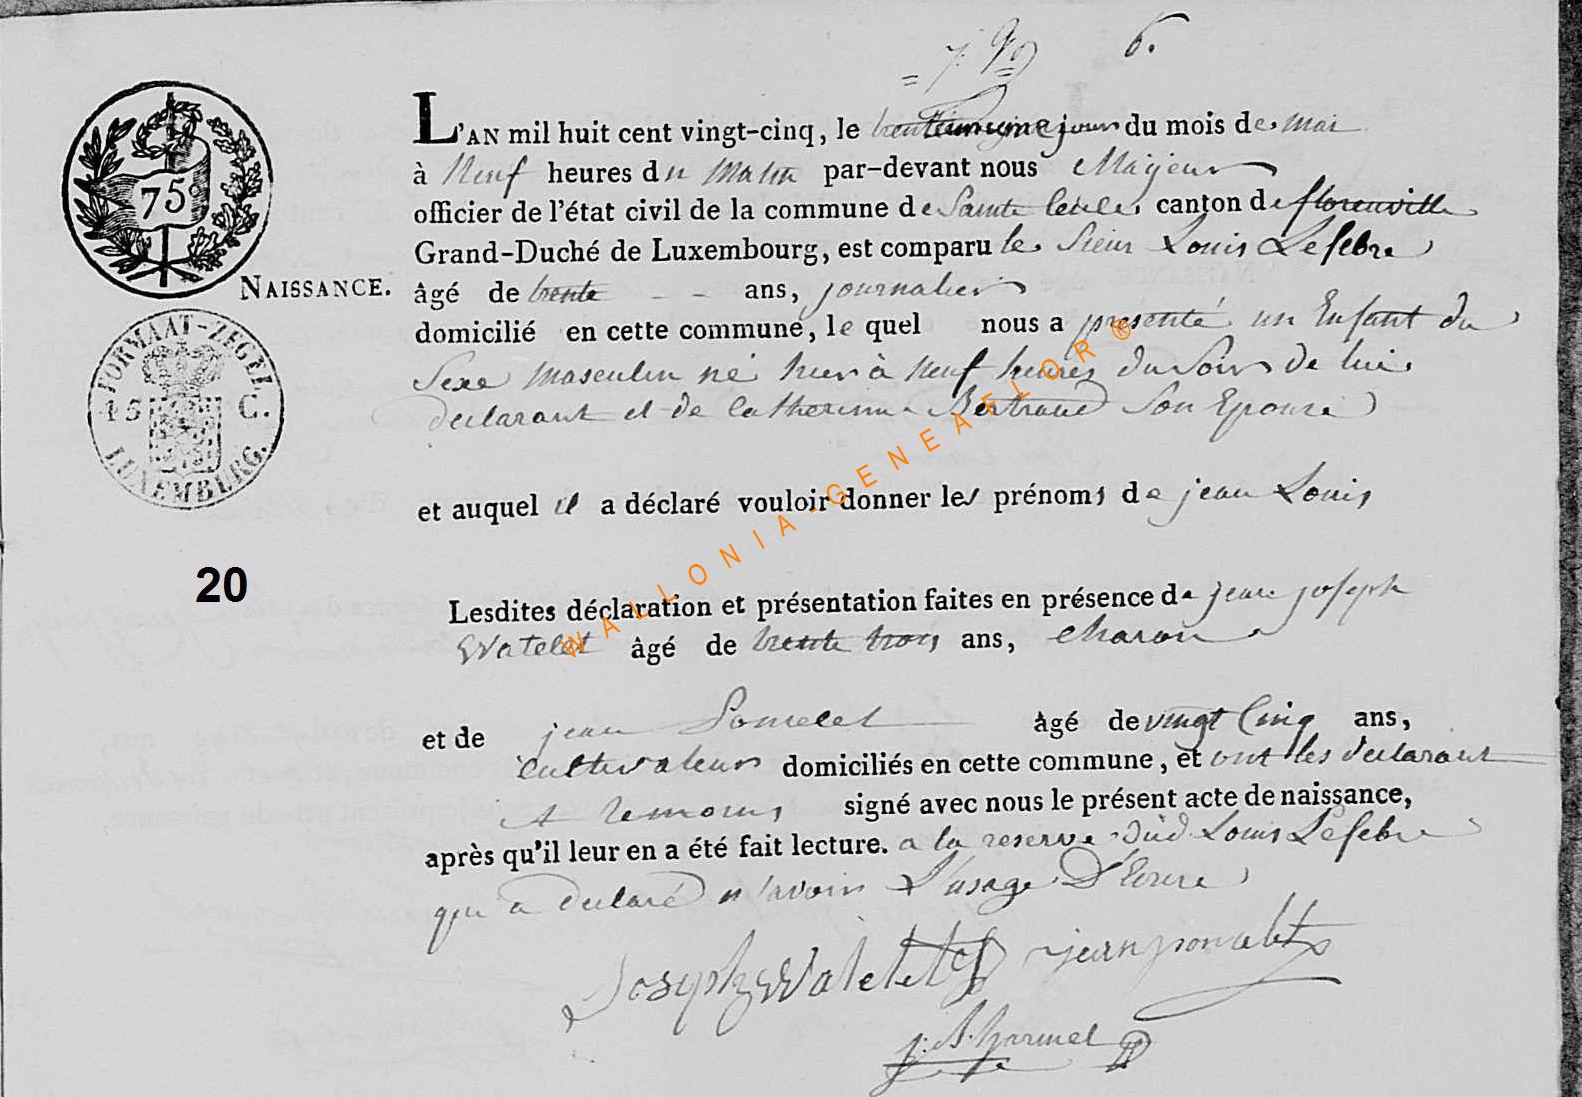 6.
75c
L'AN mil huit cent vingt-cinq, le trente unieme jour du mois de mai
à Neuf heures du matin par-devant nous Mayeur
officier de l'état civil de la commune de Sainte Cecile, canton de florenville
Grand-Duché de Luxembourg, est comparu le Sieur Louis Lefebre
NAISSANCE.
âgé de trente - - ans, journalier
domicilié en cette commune, le quel nous a presenté un Enfant du
Sexe masculin né hier à Neuf heures du Soir de lui
declarant et de Catherine Bertrand Son Epouse
FORMAAT-ZEGEL
15 C.
LUXEMBURG.
et auquel il a déclaré vouloir donner les prénoms de jean Louis
20
Lesdites déclaration et présentation faites en présence de jean joseph
Watelet âgé de trente trois ans, charon
et de jean âgé de vingt Cinq ans,
cultivateur domiciliés en cette commune, et ont les declarant
et temoins signé avec nous le présent acte de naissance,
après qu'il leur en a été fait lecture. a la reserve dud Louis Lefebre
qui a declaré n'avoir l'usage d'Ecrire
Joseph Watelet jean ponselet
WALLONIA-GENEAFLOR®